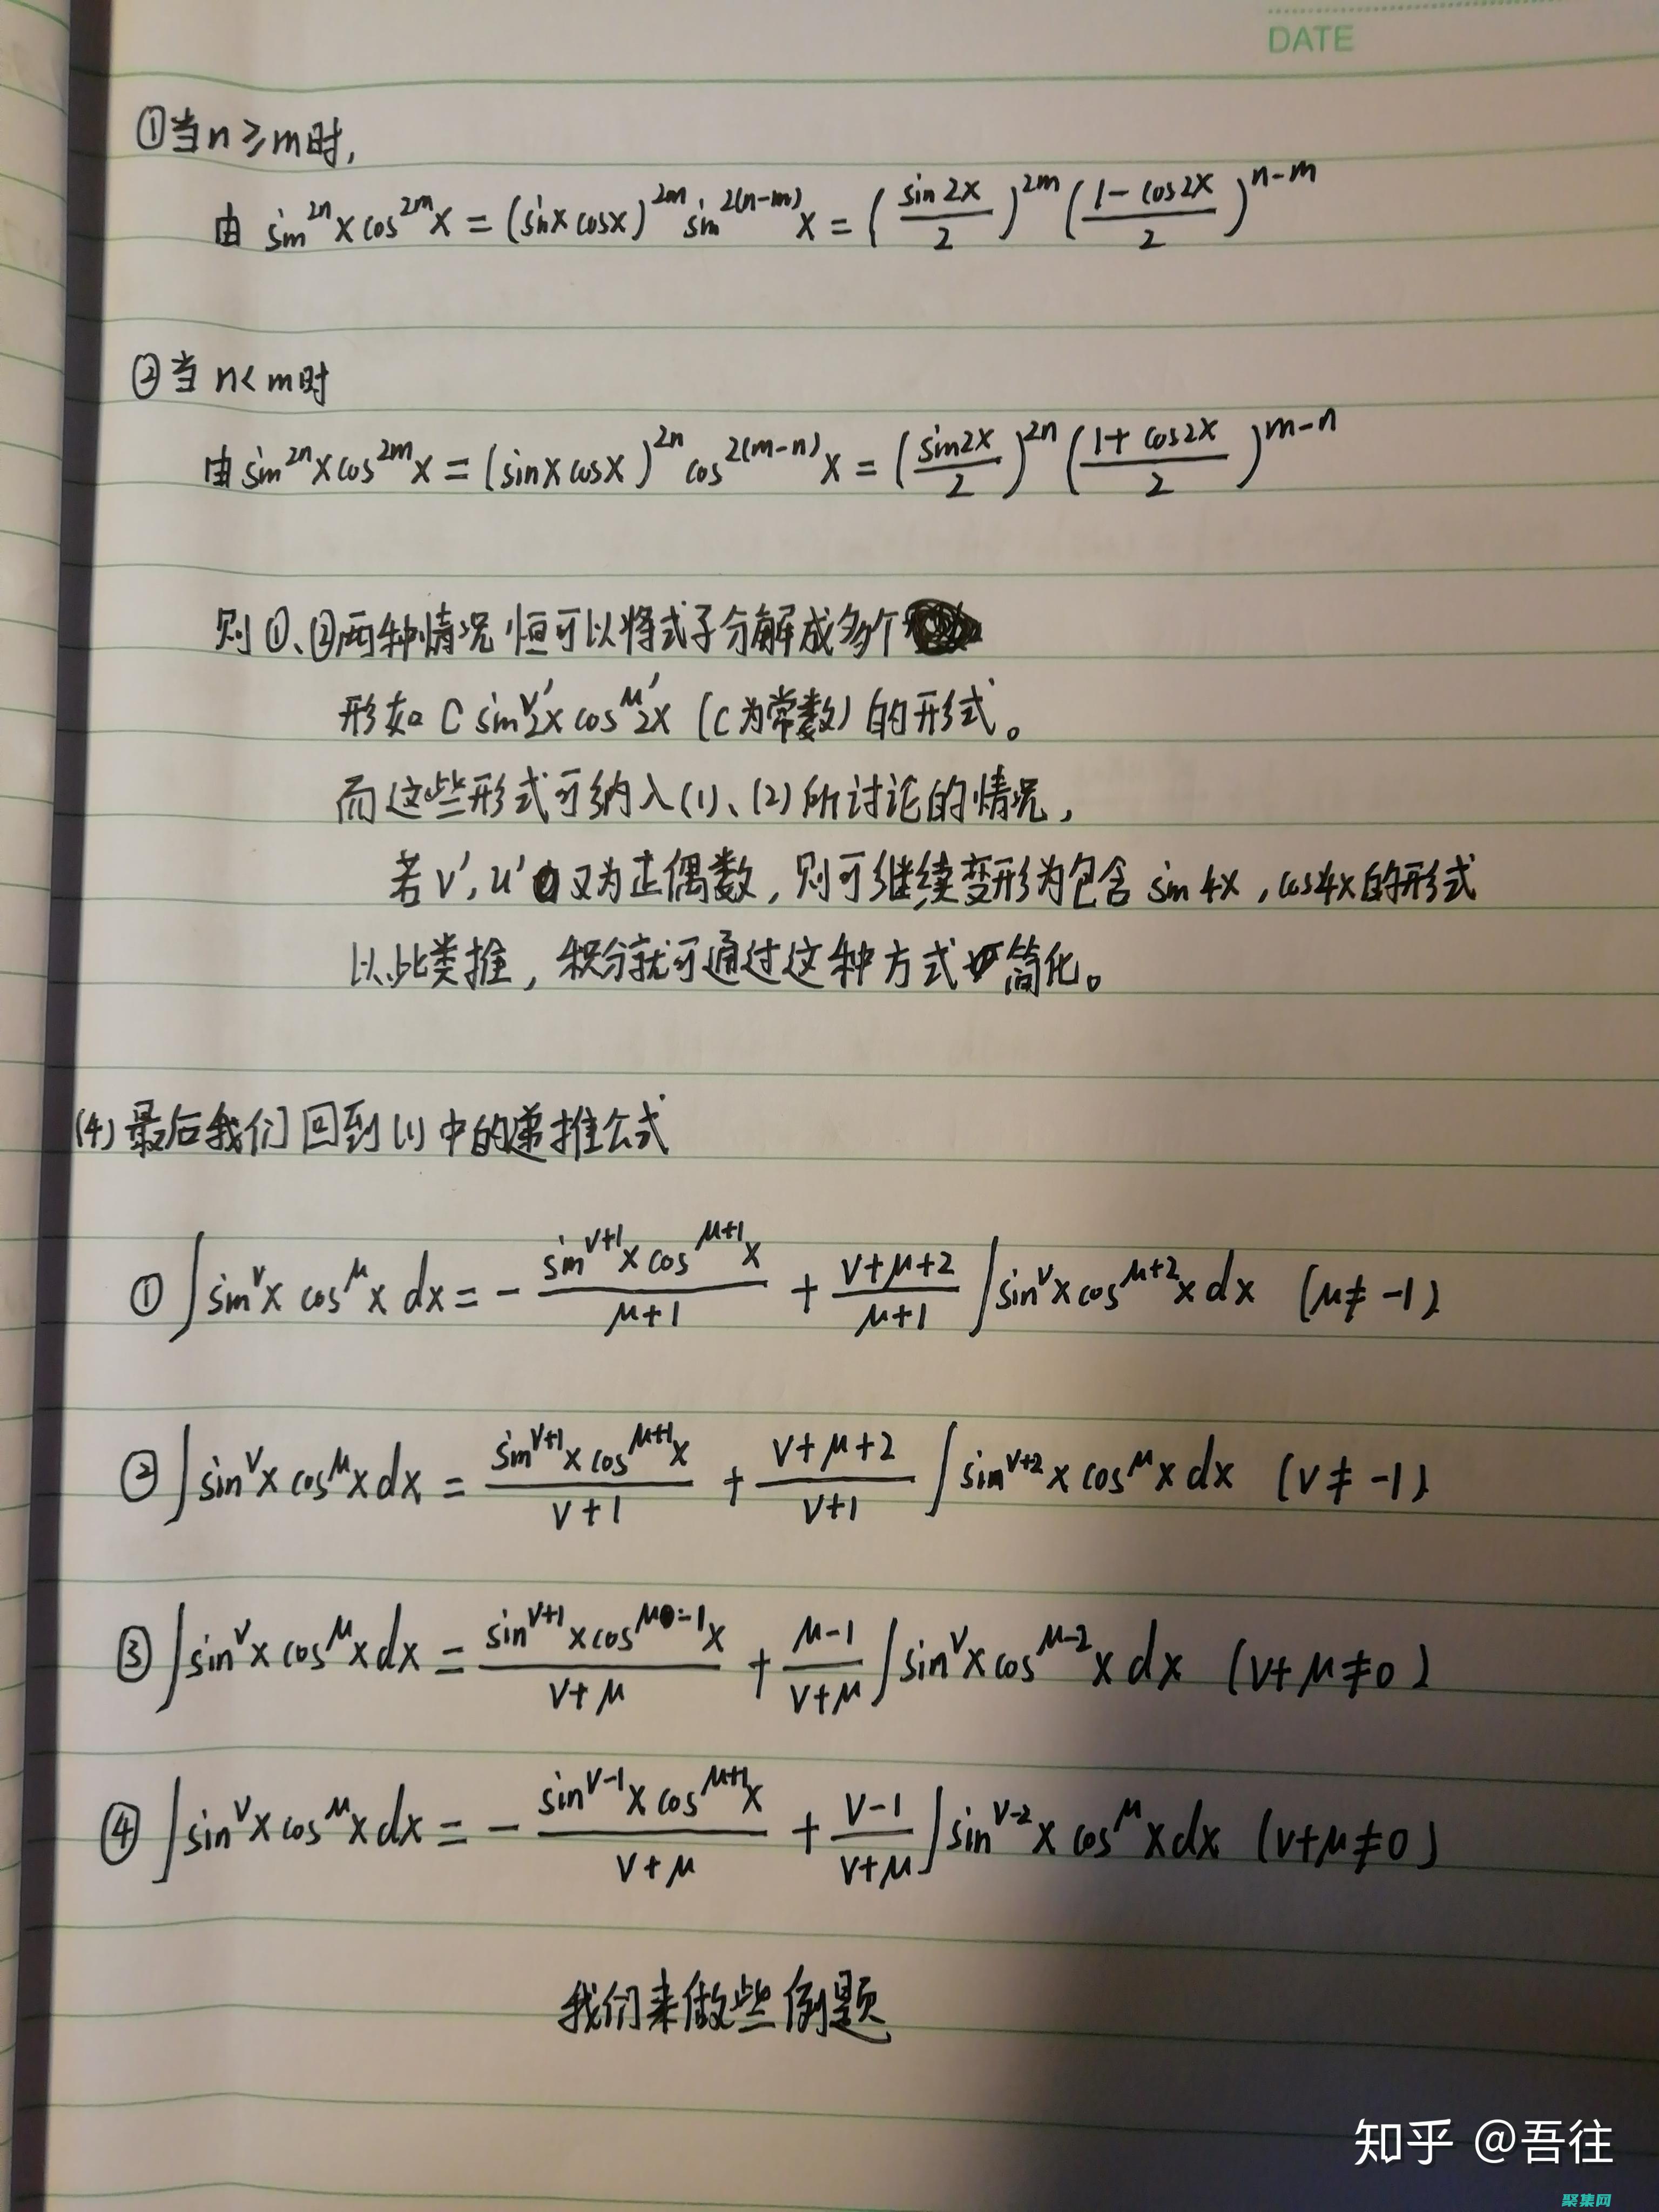 DATE
①当n≥m时,
由 sin^{2n}x cos^{2m}x = (sinx cosx)^{2m} sin^{2(n-m)}x = (sin2x/2)^{2m} ((1-cos2x)/2)^{n-m}
②当n<m时
由 sin^{2n}x cos^{2m}x = (sinx cosx)^{2n} cos^{2(m-n)}x = (sin2x/2)^{2n} ((1+cos2x)/2)^{m-n}
则①、②两种情况恒可以将式子分解成多个
形如 C sin^{ν'}2x cos^{μ'}2x (C为常数) 的形式。
而这些形式可纳入(1)、(2)所讨论的情况,
若ν',u'又为正偶数,则可继续变形为包含 sin4x,cos4x的形式
以此类推,积分就可通过这种方式简化。
(4)最后我们回到(1)中的递推公式
① ∫sin^νx cos^μx dx = - (sin^{ν+1}x cos^{μ+1}x)/(μ+1) + (ν+μ+2)/(μ+1) ∫sin^νx cos^{μ+2}x dx (μ≠-1)
② ∫sin^νx cos^μx dx = (sin^{ν+1}x cos^{μ+1}x)/(ν+1) + (ν+μ+2)/(ν+1) ∫sin^{ν+2}x cos^μx dx (ν≠-1)
③ ∫sin^νx cos^μx dx = (sin^{ν+1}x cos^{μ-1}x)/(ν+μ) + (μ-1)/(ν+μ) ∫sin^νx cos^{μ-2}x dx (ν+μ≠0)
④ ∫sin^νx cos^μx dx = - (sin^{ν-1}x cos^{μ+1}x)/(ν+μ) + (ν-1)/(ν+μ) ∫sin^{ν-2}x cos^μx dx (ν+μ≠0)
我们来做些例题
知乎 @吾往
聚集网